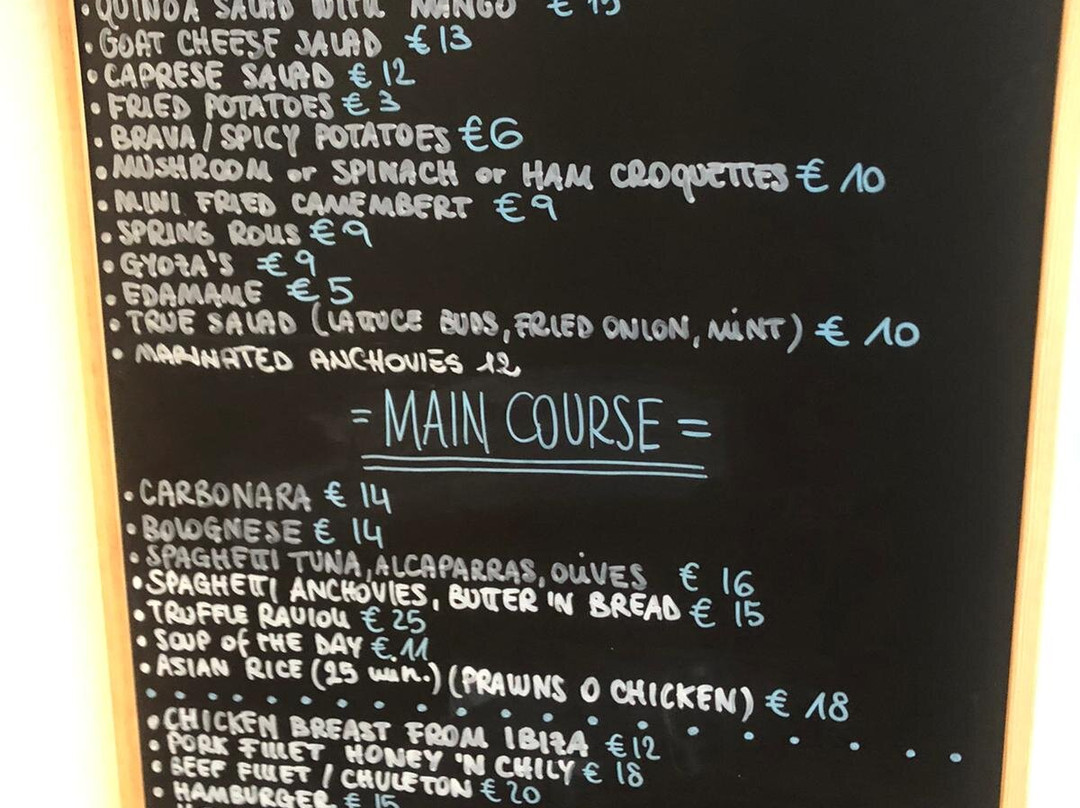 • QUINOA SALAD WITH MANGO €
• GOAT CHEESE SALAD € 13
• CAPRESE SALAD € 12
• FRIED POTATOES € 3
• BRAVA / SPICY POTATOES € 6
• MUSHROOM or SPINACH or HAM CROQUETTES € 10
• MINI FRIED CAMEMBERT € 9
• SPRING ROLLS € 9
• GYOZA'S € 9
• EDAMAME € 5
• TRUE SALAD (LATTUCE BUDS, FRIED ONION, MINT) € 10
• MARINATED ANCHOVIES 12
= MAIN COURSE =
• CARBONARA € 14
• BOLOGNESE € 14
• SPAGHETTI TUNA, ALCAPARRAS, OLIVES € 16
• SPAGHETTI ANCHOVIES, BUTTER 'N BREAD € 15
• TRUFFLE RAVIOLI € 25
• SOUP of THE DAY € 11
• ASIAN RICE (25 min.) (PRAWNS O CHICKEN) € 18
• CHICKEN BREAST FROM IBIZA € 12
• PORK FILLET HONEY 'N CHILY € 18
• BEEF FILLET / CHULETON € 20
• HAMBURGER € 15